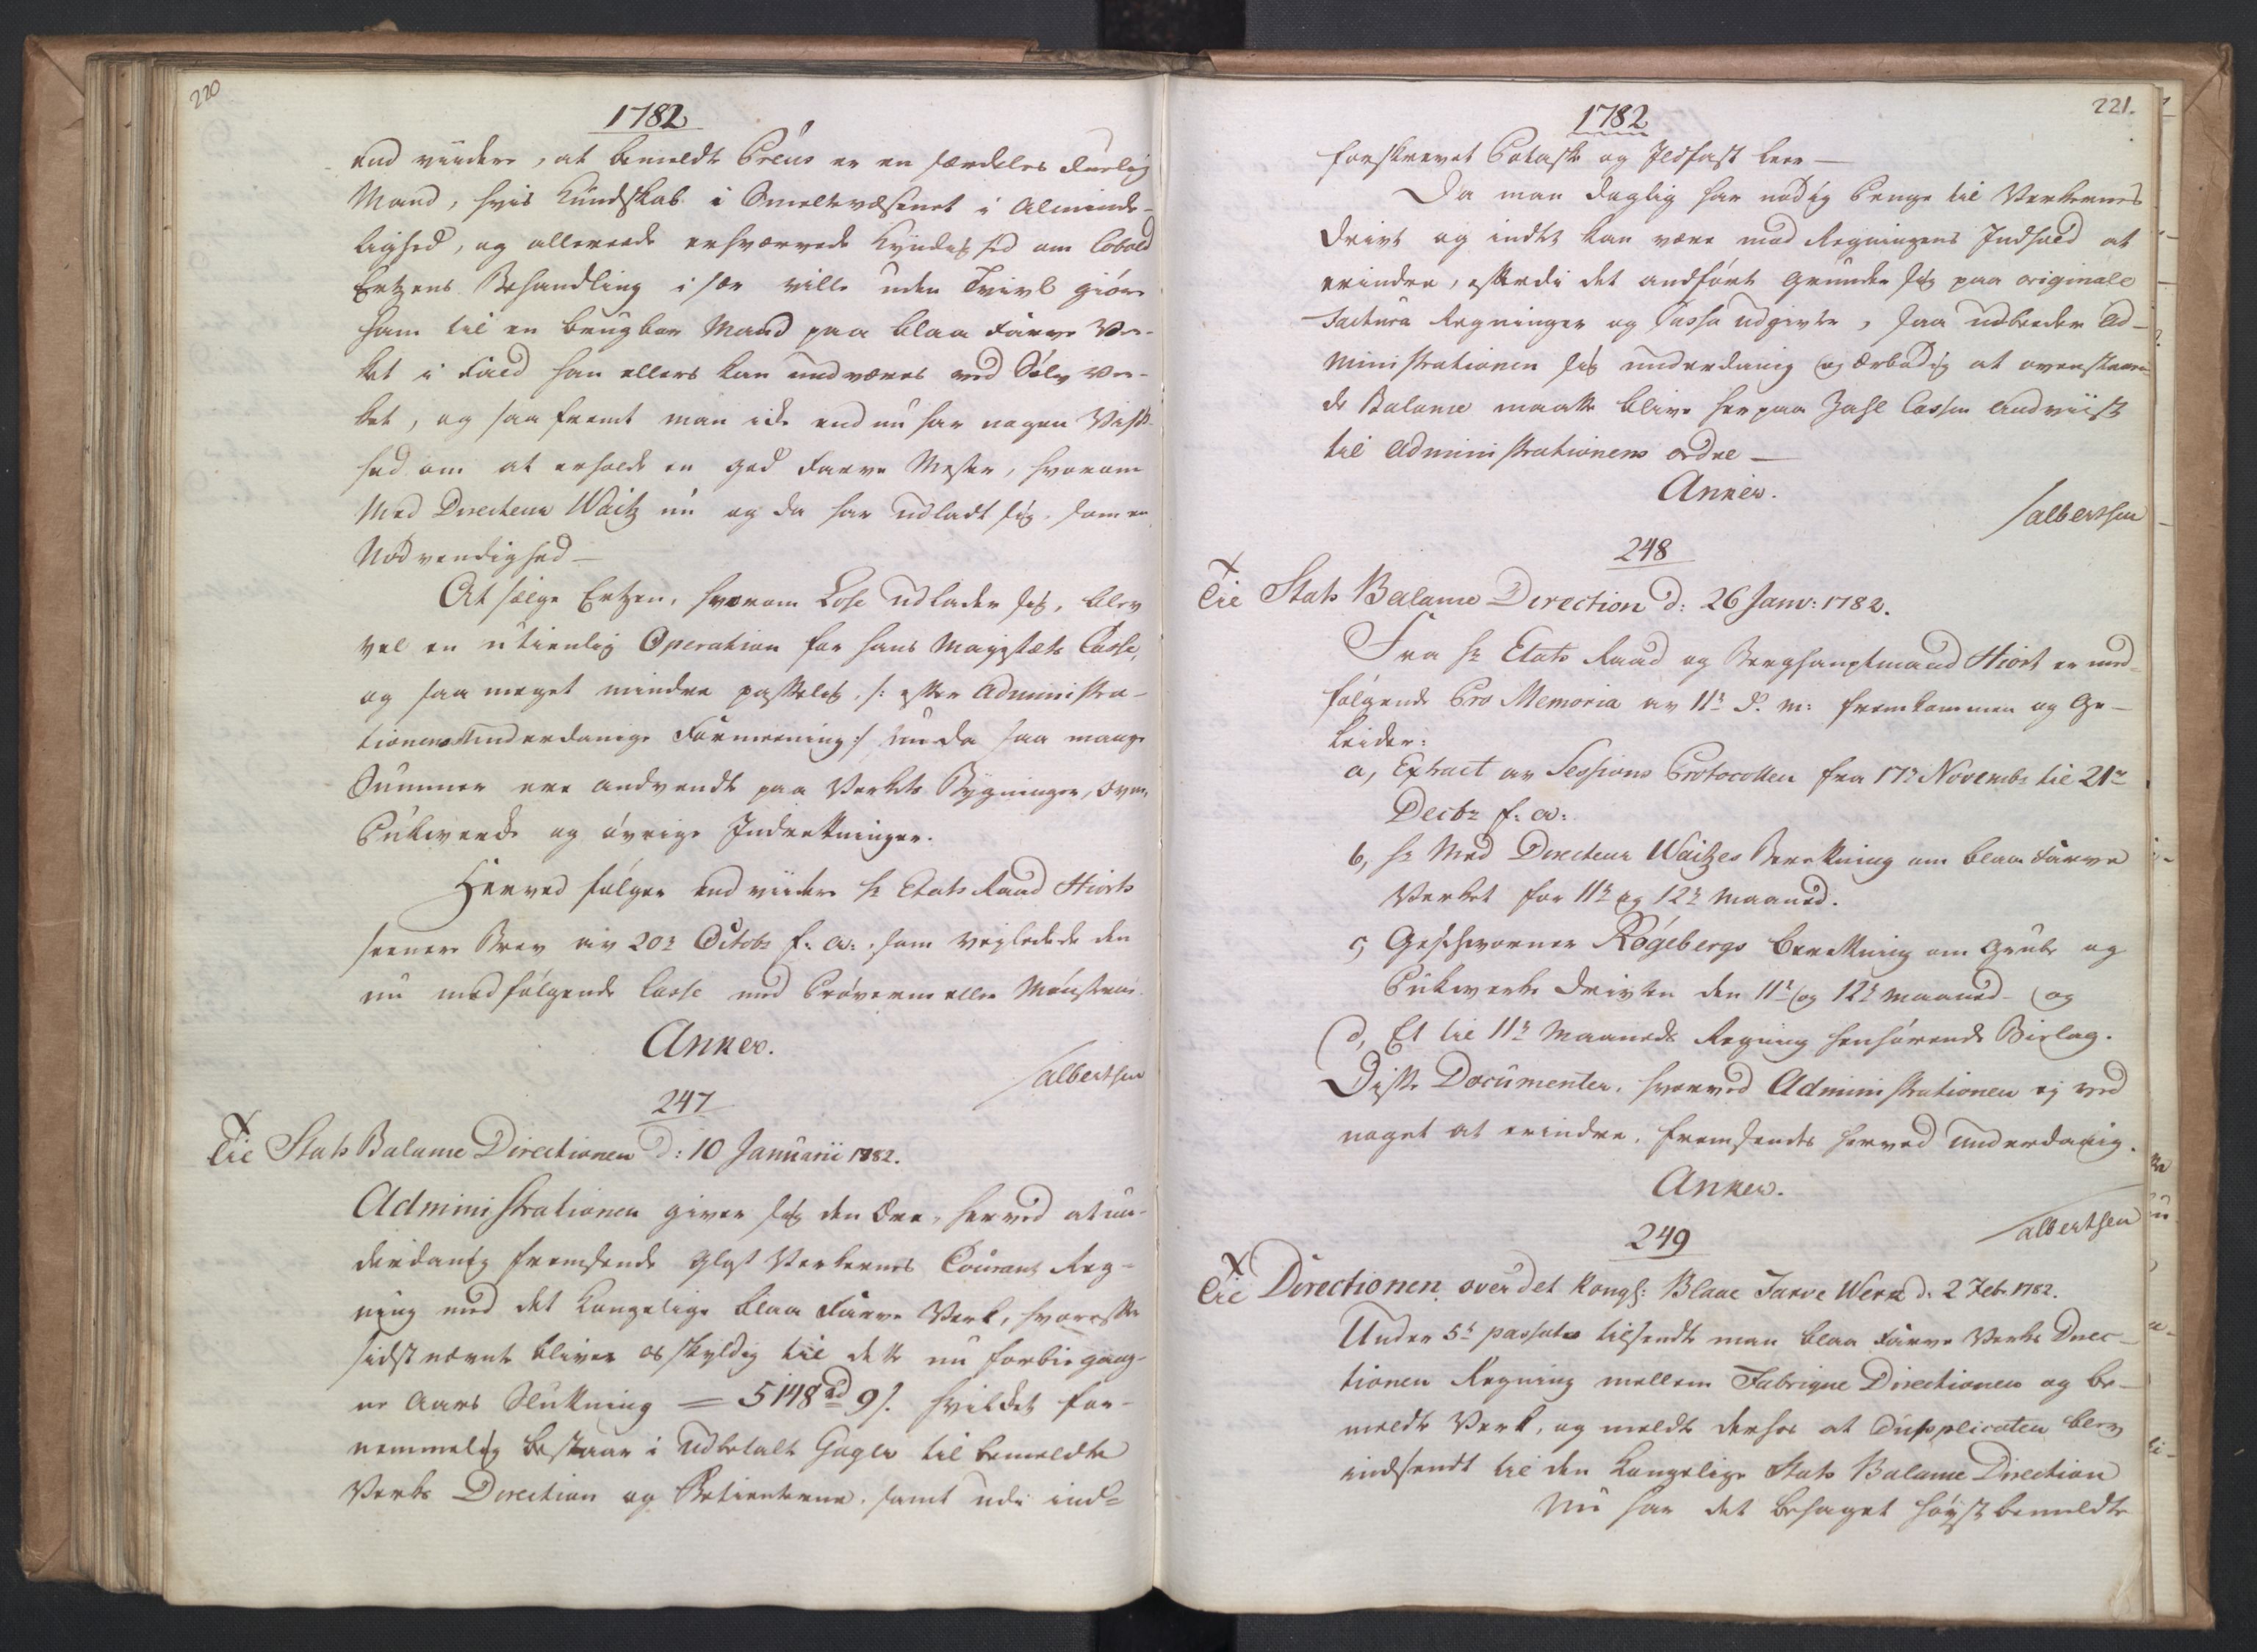 220
1782
end viidere, at bemeldte Preus er en særdeles duelig
Mand, hvis Kundskab i Smeltevæsenet i Alminde-
lighed, og allereede erhvervede Kyndighed om Cobold
Ertzens Behandling i sær ville uden Tvivl giöre
ham til en brugbar Mand paa blaa Farve Ver-
ket i Fald han ellers kan undværes ved Sölv Ver-
ket, og saa fremt man ick endnu har nogen Viss-
hed om at erholde en god Farve Mester, hvorom
Med Directeur Waitz nu og da har udladt sig som en
Nödvendighed —
At sælge Ertzen, hvorom Lose udlader sig, blev
vel en utienlig Operation for hans Mayestæts Casse,
og saa meget mindre passelig /: efter Administra-
tionens underdanige Formeening :/ nu da saa mange
Summer ere andvendt paa Verkets Bygninger, Ovne,
Pukverk og övrige Indretninger.
Herved fölger end viidere Hr Etats Raad Hiorts
seenere Brev av 20de Octobr f: a:, som veyledede den
nu medfölgende Casse med Pröverne eller Mönstrene.
Anker.
/Albertsen
247
X
Til Stats Balance Directionen d: 10 Januarii 1782.
Administrationen giver sig den Ære, herved at un-
derdanig fremsende Glas Verkernes Courant Reg-
ning med det Kongelige blaa Farve Verk, hvorefter
sidstnævnte bliver os skyldig til dette nu forbigang-
ne Aars Slutning = 5148 rd 9 s. hvilket for-
nemmelig bestaar i udbetalte Gager til bemeldte
Verks Direction og Betienterne, samt udi ind-
221.
1782
forskrevet Potaske og Ildfast leer —
Da man daglig har nödig Penge til Verkernes
Drivt og indtet kan være mod Regningens Indhold at
erindre, efterdi det andförte grunder sig paa originale
Factura Regninger og Cassa udgivter, saa udbeder Ad-
ministrationen sig underdanig og ærbödig at ovenstaaen-
de Balance maatte blive her paa Zahl Cassen andviist
til Administrationens ordre —
Anker.
/Albertsen
248
X
Til Stats Balance Direction d: 26 Janv: 1782.
Fra Hr Etats Raad og Berghauptmand Hiort er med-
fölgende Pro Memoria av 11te d. m: fremkommen og Ge-
leider:
a, Extract av Sessions Protocollen fra 17de Novembr til 21de
Decbr f: a:
b, Hr Med Directeur Waitzes Beretning om blaa Farve
Verket for 11te og 12te Maaned.
c, Geschworner Rögebergs beretning om Grube og
Pukverks Drivten den 11te og 12te Maaned – og
d, Et til 11te Maaneds Regning henhörende Bielag.
Disse Documenter, hvorved Administrationen ej ved
noget at erindre, fremsendes herved underdanig.
Anker.
/Albertsen
249
X
Til Directionen over det Kongl: Blaae Farve Werk d. 2 Feb. 1782.
Under 5te passato tilsendte man blaa Farve Verks Direc-
tionen Regning mellem Fabrique Directionen og be-
meldte Verk, og meldte derhos at Dupplicaten blev
indsendt til den Kongelige Stats Balance Direction
Nu har det behaget höystbemeldte